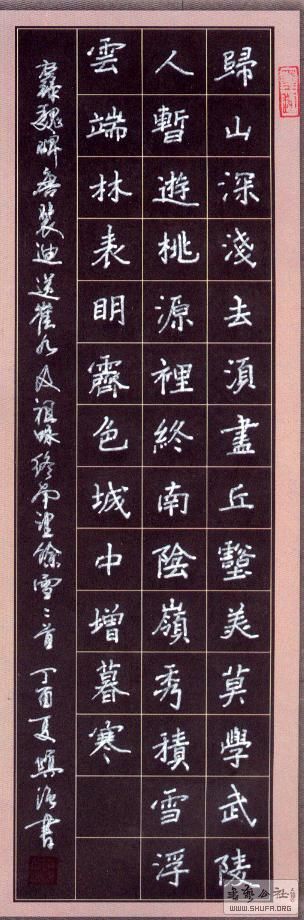 歸山深淺去須盡丘壑美莫學武陵
人暫遊桃源裡終南陰嶺秀積雪浮
雲端林表明霽色城中增暮寒
魏碑唐裴迪送崔九及祖咏終南望餘雪二首 丁酉夏 書
WWW.SHUFA.ORG